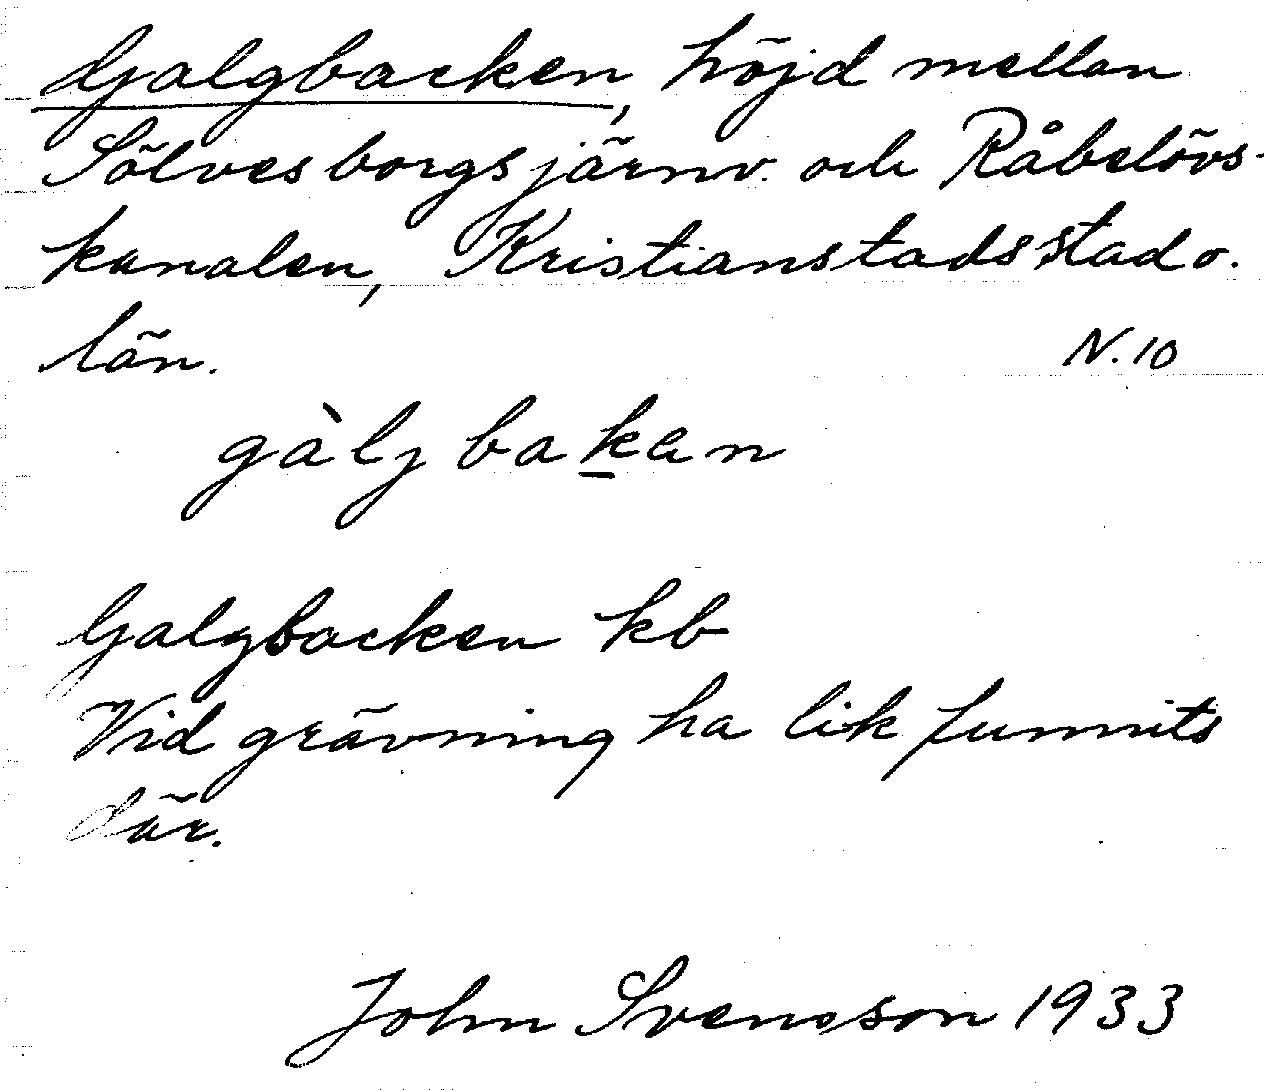 Galgbacken, höjd mellan
Sölvesborgsjärnv. och Råbelövs-
kanalen, Kristianstads stad o.
län.
N. 10
gàljbakan
Galgbacken kb
Vid grävning ha lik funnits
där.
John Svensson 1933